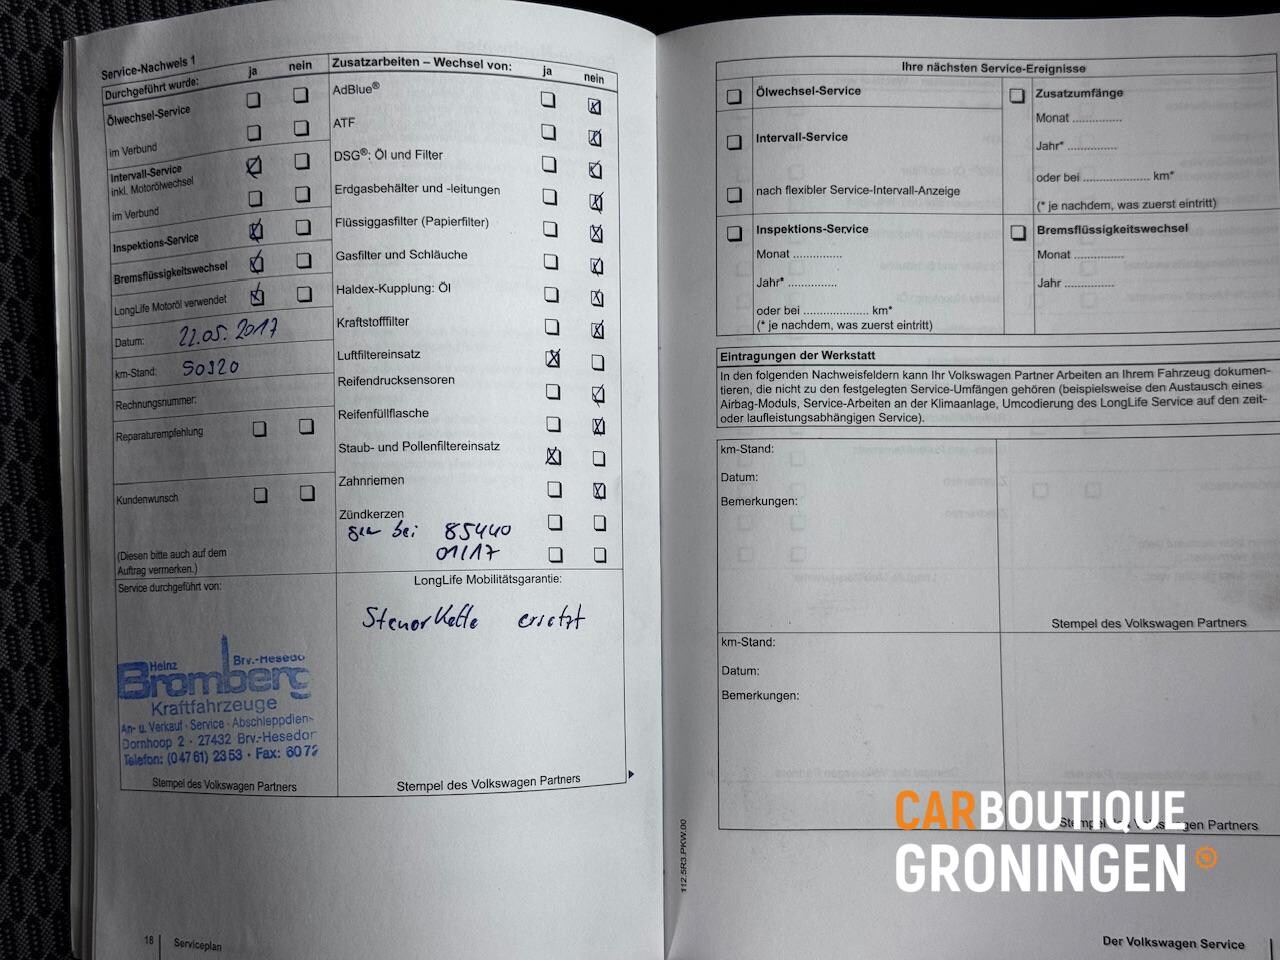 Service-Nachweis 1
Durchgeführt wurde: ja nein
Ölwechsel-Service
im Verbund
Intervall-Service
inkl. Motorölwechsel
im Verbund
Inspektions-Service
Bremsflüssigkeitswechsel
LongLife Motoröl verwendet
Datum: 22.05.2017
km-Stand: 50320
Rechnungsnummer:
Reparaturempfehlung
Kundenwunsch
(Diesen bitte auch auf dem
Auftrag vermerken.)
Service durchgeführt von:
Heinz Brv.-Hesedo
Bromberg
Kraftfahrzeuge
An- u. Verkauf · Service · Abschleppdien
Dornhoop 2 · 27432 Brv.-Hesedor
Telefon: (04761) 2353 · Fax: 6072
Stempel des Volkswagen Partners
Zusatzarbeiten – Wechsel von: ja nein
AdBlue®
ATF
DSG®: Öl und Filter
Erdgasbehälter und -leitungen
Flüssiggasfilter (Papierfilter)
Gasfilter und Schläuche
Haldex-Kupplung: Öl
Kraftstofffilter
Luftfiltereinsatz
Reifendrucksensoren
Reifenfüllflasche
Staub- und Pollenfiltereinsatz
Zahnriemen
Zündkerzen
bei 85440
01/17
LongLife Mobilitätsgarantie:
Steuerkette ersetzt
Stempel des Volkswagen Partners
18 Serviceplan
Ihre nächsten Service-Ereignisse
Ölwechsel-Service
Intervall-Service
nach flexibler Service-Intervall-Anzeige
Zusatzumfänge
Monat ..............
Jahr* ..............
oder bei ................... km*
(* je nachdem, was zuerst eintritt)
Inspektions-Service
Monat ..............
Jahr* ..............
oder bei ................... km*
(* je nachdem, was zuerst eintritt)
Bremsflüssigkeitswechsel
Monat ..............
Jahr ..............
Eintragungen der Werkstatt
In den folgenden Nachweisfeldern kann Ihr Volkswagen Partner Arbeiten an Ihrem Fahrzeug dokumen-
tieren, die nicht zu den festgelegten Service-Umfängen gehören (beispielsweise den Austausch eines
Airbag-Moduls, Service-Arbeiten an der Klimaanlage, Umcodierung des LongLife Service auf den zeit-
oder laufleistungsabhängigen Service).
km-Stand:
Datum:
Bemerkungen:
Stempel des Volkswagen Partners
km-Stand:
Datum:
Bemerkungen:
Stempel des Volkswagen Partners
112.5R3.PKW.00
CARBOUTIQUE
GRONINGEN
Der Volkswagen Service